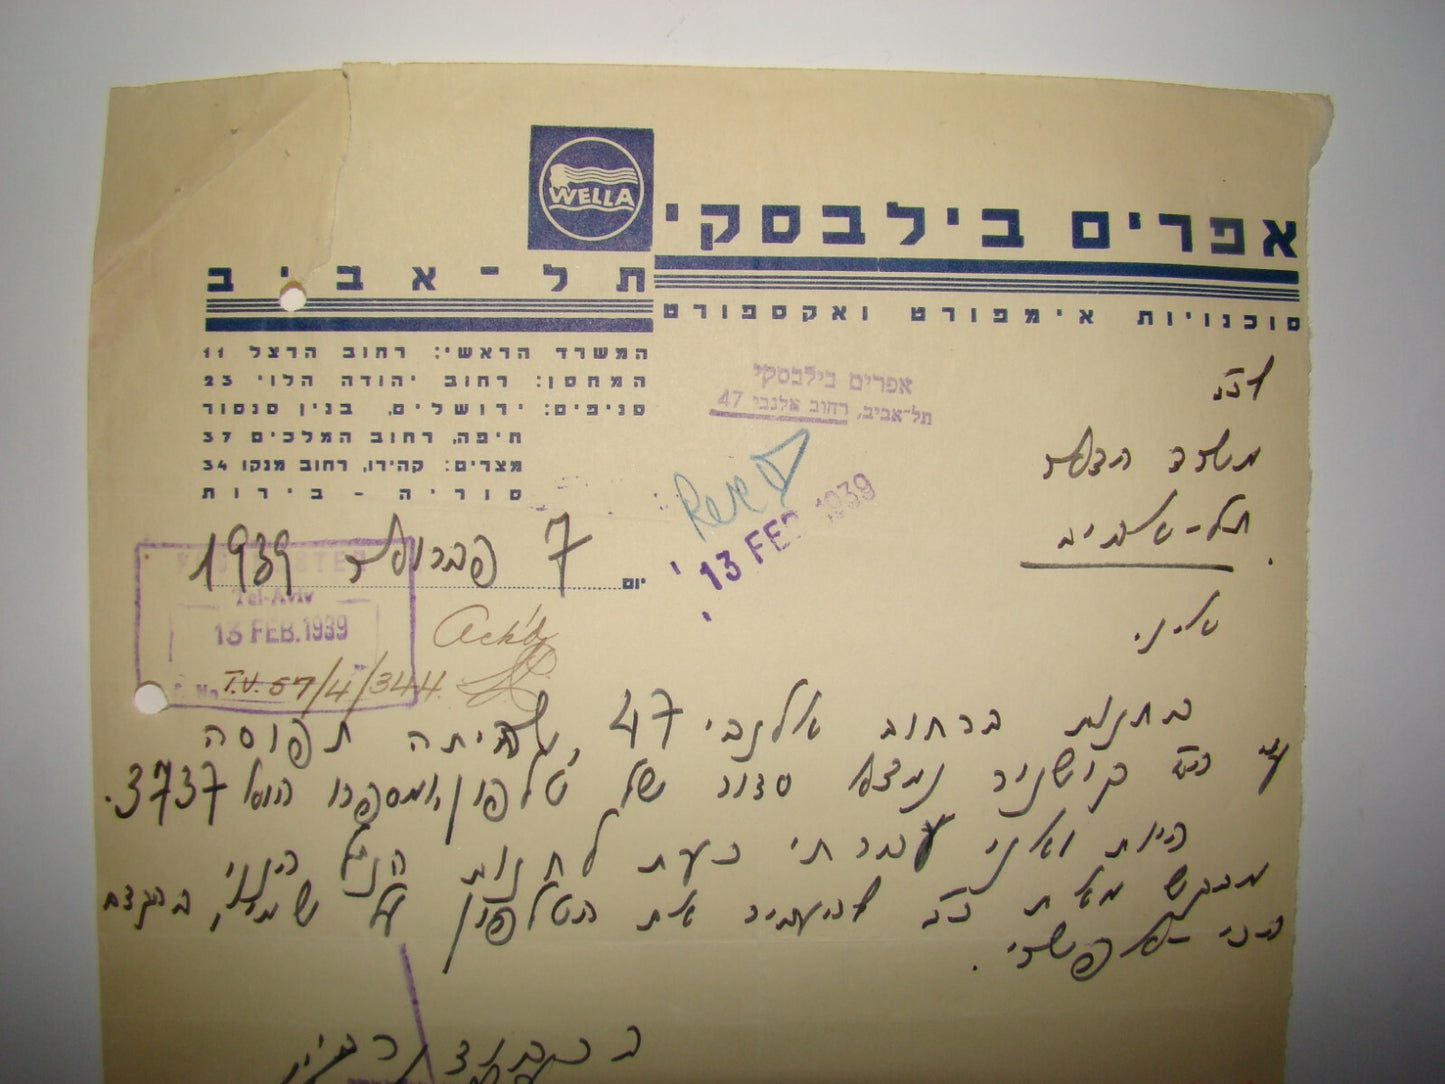 WELLA
אפרים בילבסקי
תל-אביב
סוכנויות אימפורט ואקספורט
המשרד הראשי: רחוב הרצל 11
המחסן: רחוב יהודה הלוי 23
סניפים: ירושלים, בנין סנסור
חיפה, רחוב המלכים 37
מצרים: קהירו, רחוב מנקו 34
סוריה - בירות
אפרים בילבסקי
תל-אביב, רחוב אלנבי 47
לכב׳
משרד הדאר
תל-אביב
Rec'd
13 FEB 1939
יום 7 פברואר 1939
Tel-Aviv
13 FEB. 1939
No T.V. 57/4/344
Ack'd
א.נ.
בחנות ברחוב אלנבי 47, שהיתה תפוסה
ע״י ה׳ קושניר נמצא סדור של טלפון, ומספרו הוא 3737.
היות ואני עברתי כעת לחנות הנ״ל הינני
מבקש מאת כב׳ להעביר את הטלפון על שמי, בהקדם
הכי-אפשרי.
בכבוד רב